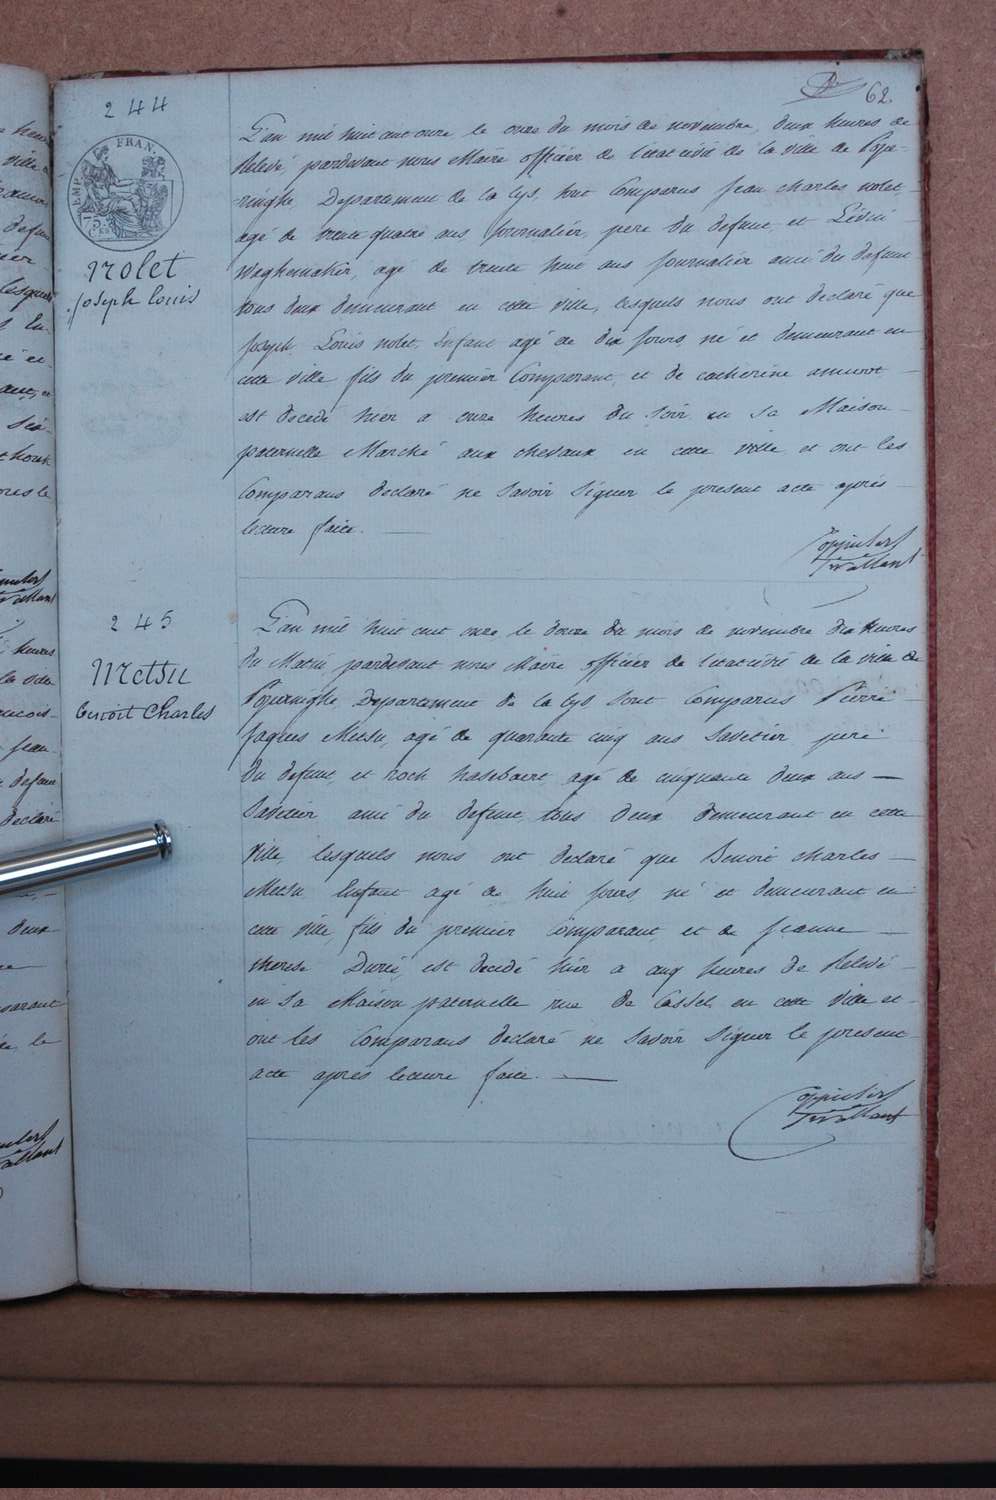 62
244
EMP. FRAN.
Nolet
Joseph Louis
L'an mil huit cent onze le onze du mois de novembre, deux heures de
Relevé, pardevant nous Maire officier de l'etat civil de la ville de Pope-
-ringhe Departement de la Lys, sont Comparus Jean Charles nolet,
agé de trente quatre ans Journalier, pere du defunt, et Livin
Waghemaker, agé de trente huit ans Journalier ami du defunt
tous deux demeurant en cette ville, lesquels nous ont declaré que
Joseph Louis nolet, Enfant agé de dix jours, né et demeurant en
cette ville fils du premier Comparant, et de catherine
est decedé hier a onze heures du soir en sa Maison
paternelle Marché aux chevaux en cette ville et ont les
Comparans declaré ne savoir signer le present acte après
lecture faite.
245
Metsu
Benoit Charles
L'an mil huit cent onze le douze du mois de novembre dix heures
du Matin, pardevant nous Maire officier de l'etat civil de la ville de
Poperinghe Departement de la Lys sont Comparus Pierre
Jaques Metsu, agé de quarante cinq ans Savetier pere
du defunt, et roch hasebaert agé de cinquante deux ans
Savetier ami du defunt, tous deux demeurant en cette
ville, lesquels nous ont declaré que Benoit charles
Metsu Enfant agé de huit jours, né et demeurant en
cette ville, fils du premier Comparant, et de jeanne
therese Durié, est decedé hier a cinq heures de Relevé
en sa Maison paternelle rue de Cassel, en cette ville et
ont les Comparans declaré ne savoir signer le present
acte après lecture faite.